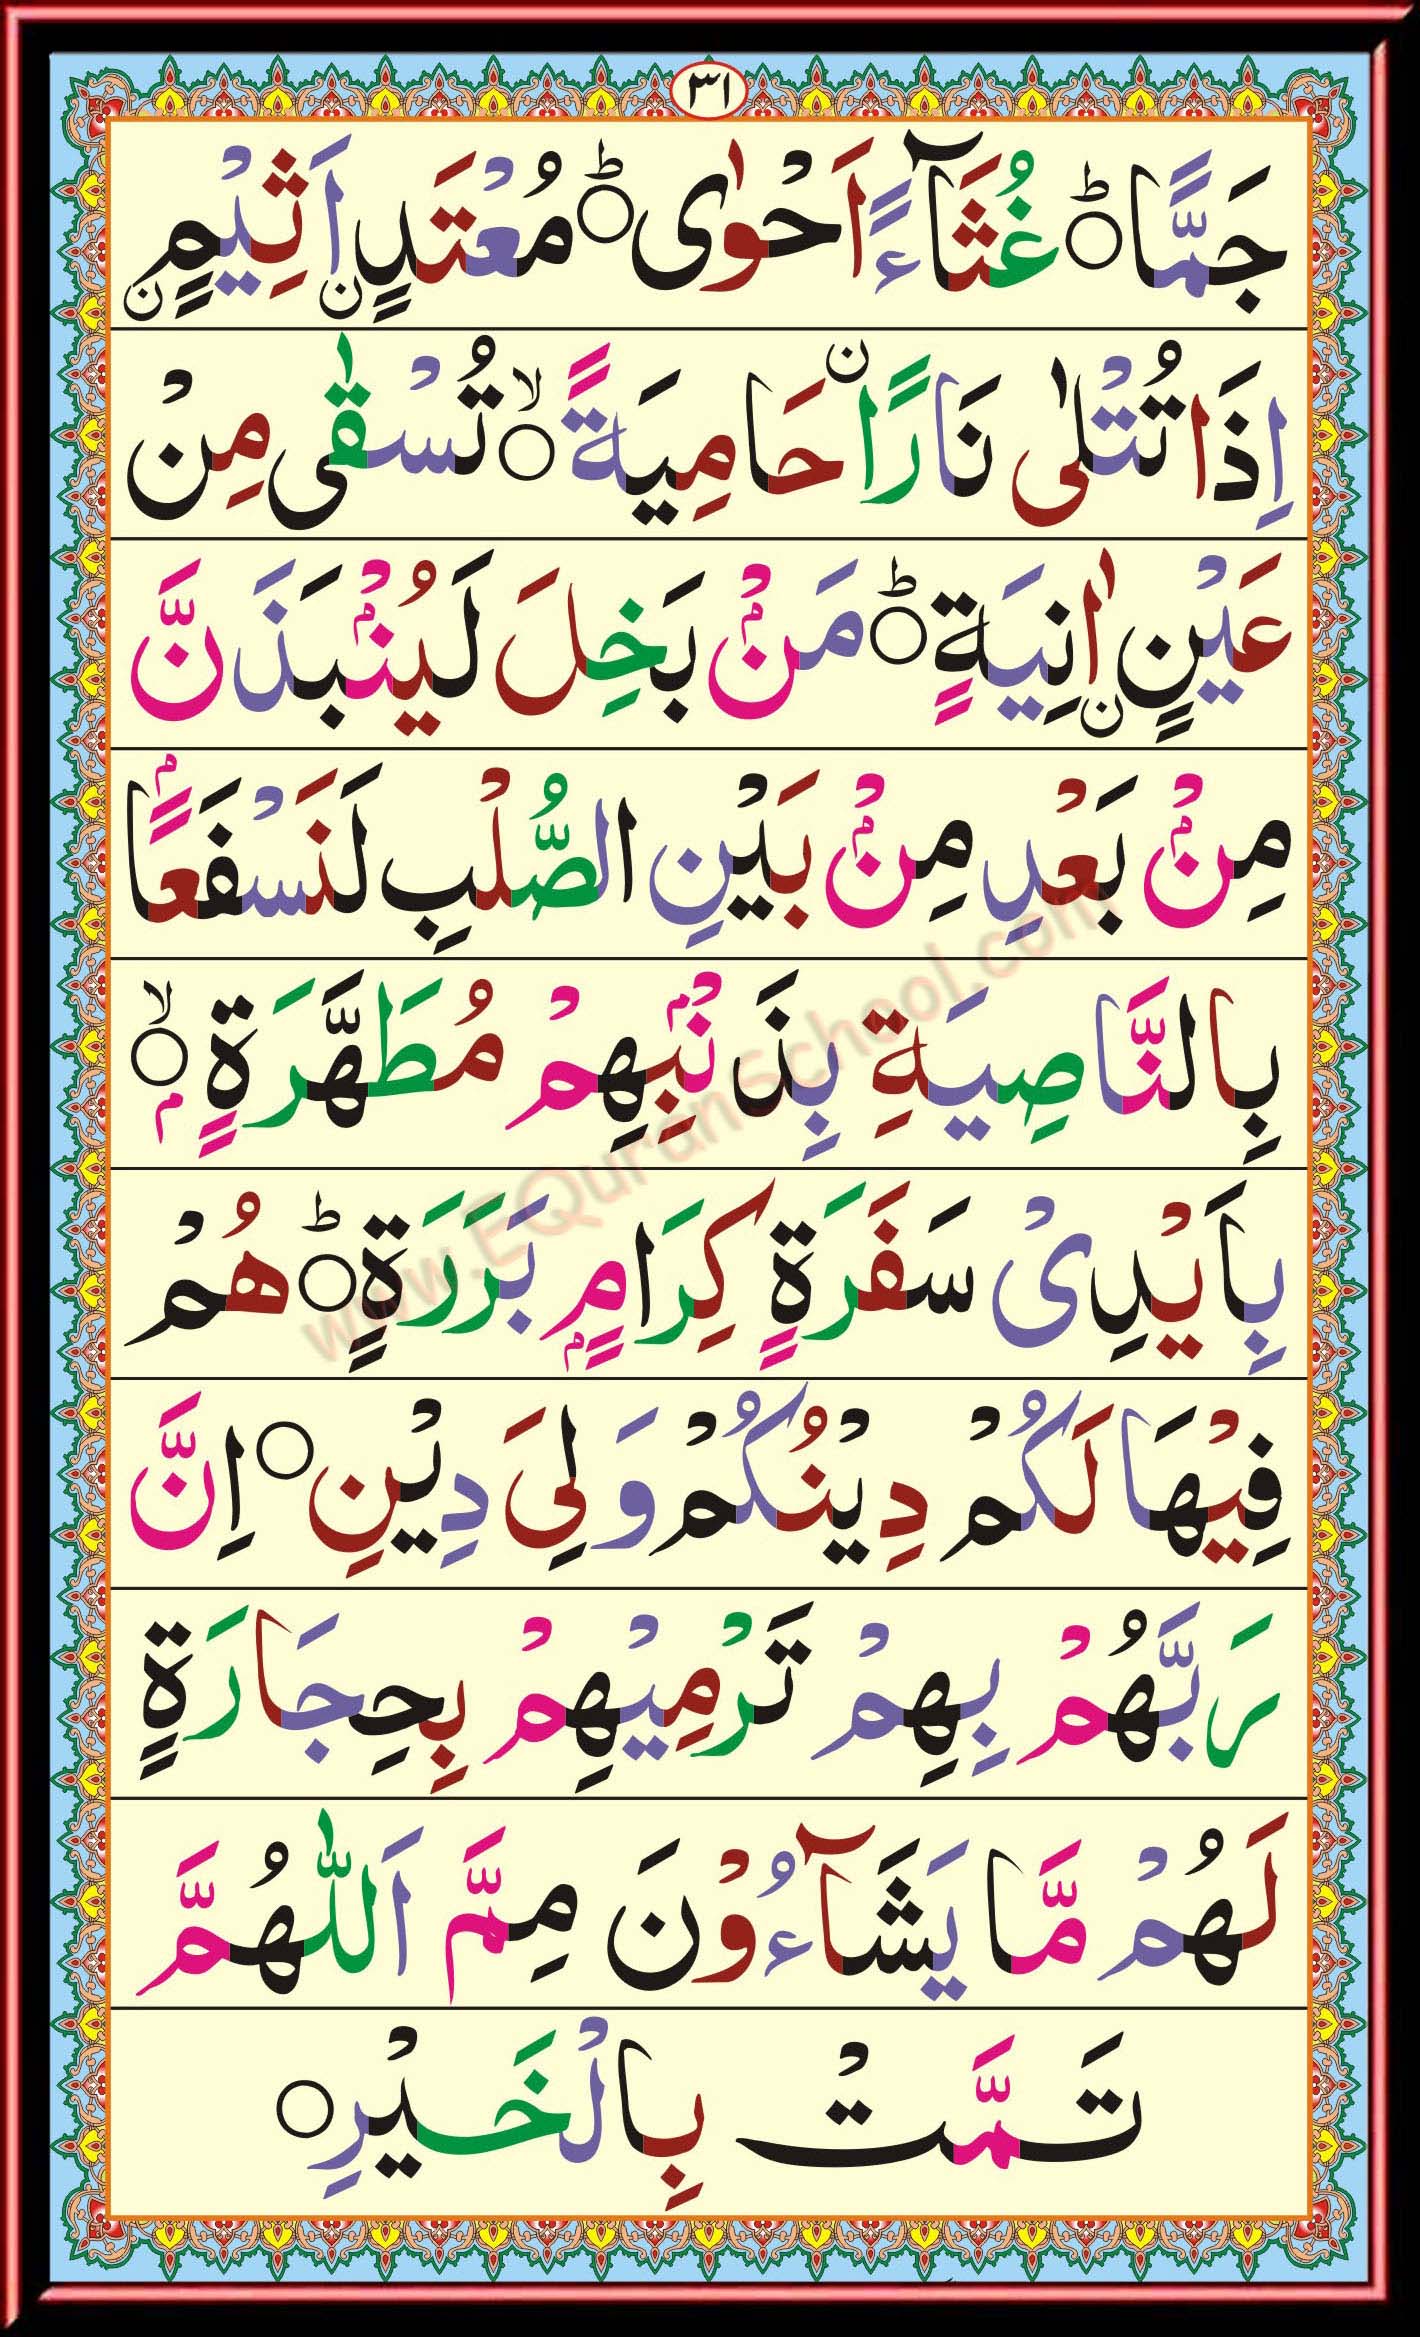 ٣١
جَمًّا ؕ غُثَآءً اَحْوٰى ؕ مُعْتَدٍ اَثِيْمٍ
اِذَا تُتْلٰى نَارًا حَامِيَةً ۙ تُسْقٰى مِنْ
عَيْنٍ اٰنِيَةٍ ؕ مَنْۢ بَخِلَ لَيُنْۢبَذَنَّ
مِنْۢ بَعْدِ مِنْۢ بَيْنِ الصُّلْبِ لَنَسْفَعًۢا
بِالنَّاصِيَةِ بِذَنْۢبِهِمْ مُطَهَّرَةٍ ۙ
بِاَيْدِىْ سَفَرَةٍ كِرَامٍ بَرَرَةٍ ؕ هُمْ
فِيْهَا لَكُمْ دِيْنُكُمْ وَلِىَ دِيْنِ ۝ اِنَّ
رَبَّهُمْ بِهِمْ تَرْمِيْهِمْ بِحِجَارَةٍ
لَهُمْ مَّا يَشَآءُوْنَ مِمَّ اَللّٰهُمَّ
تَمَّتْ بِالْخَيْرِ ۝
www.EQuranSchool.com